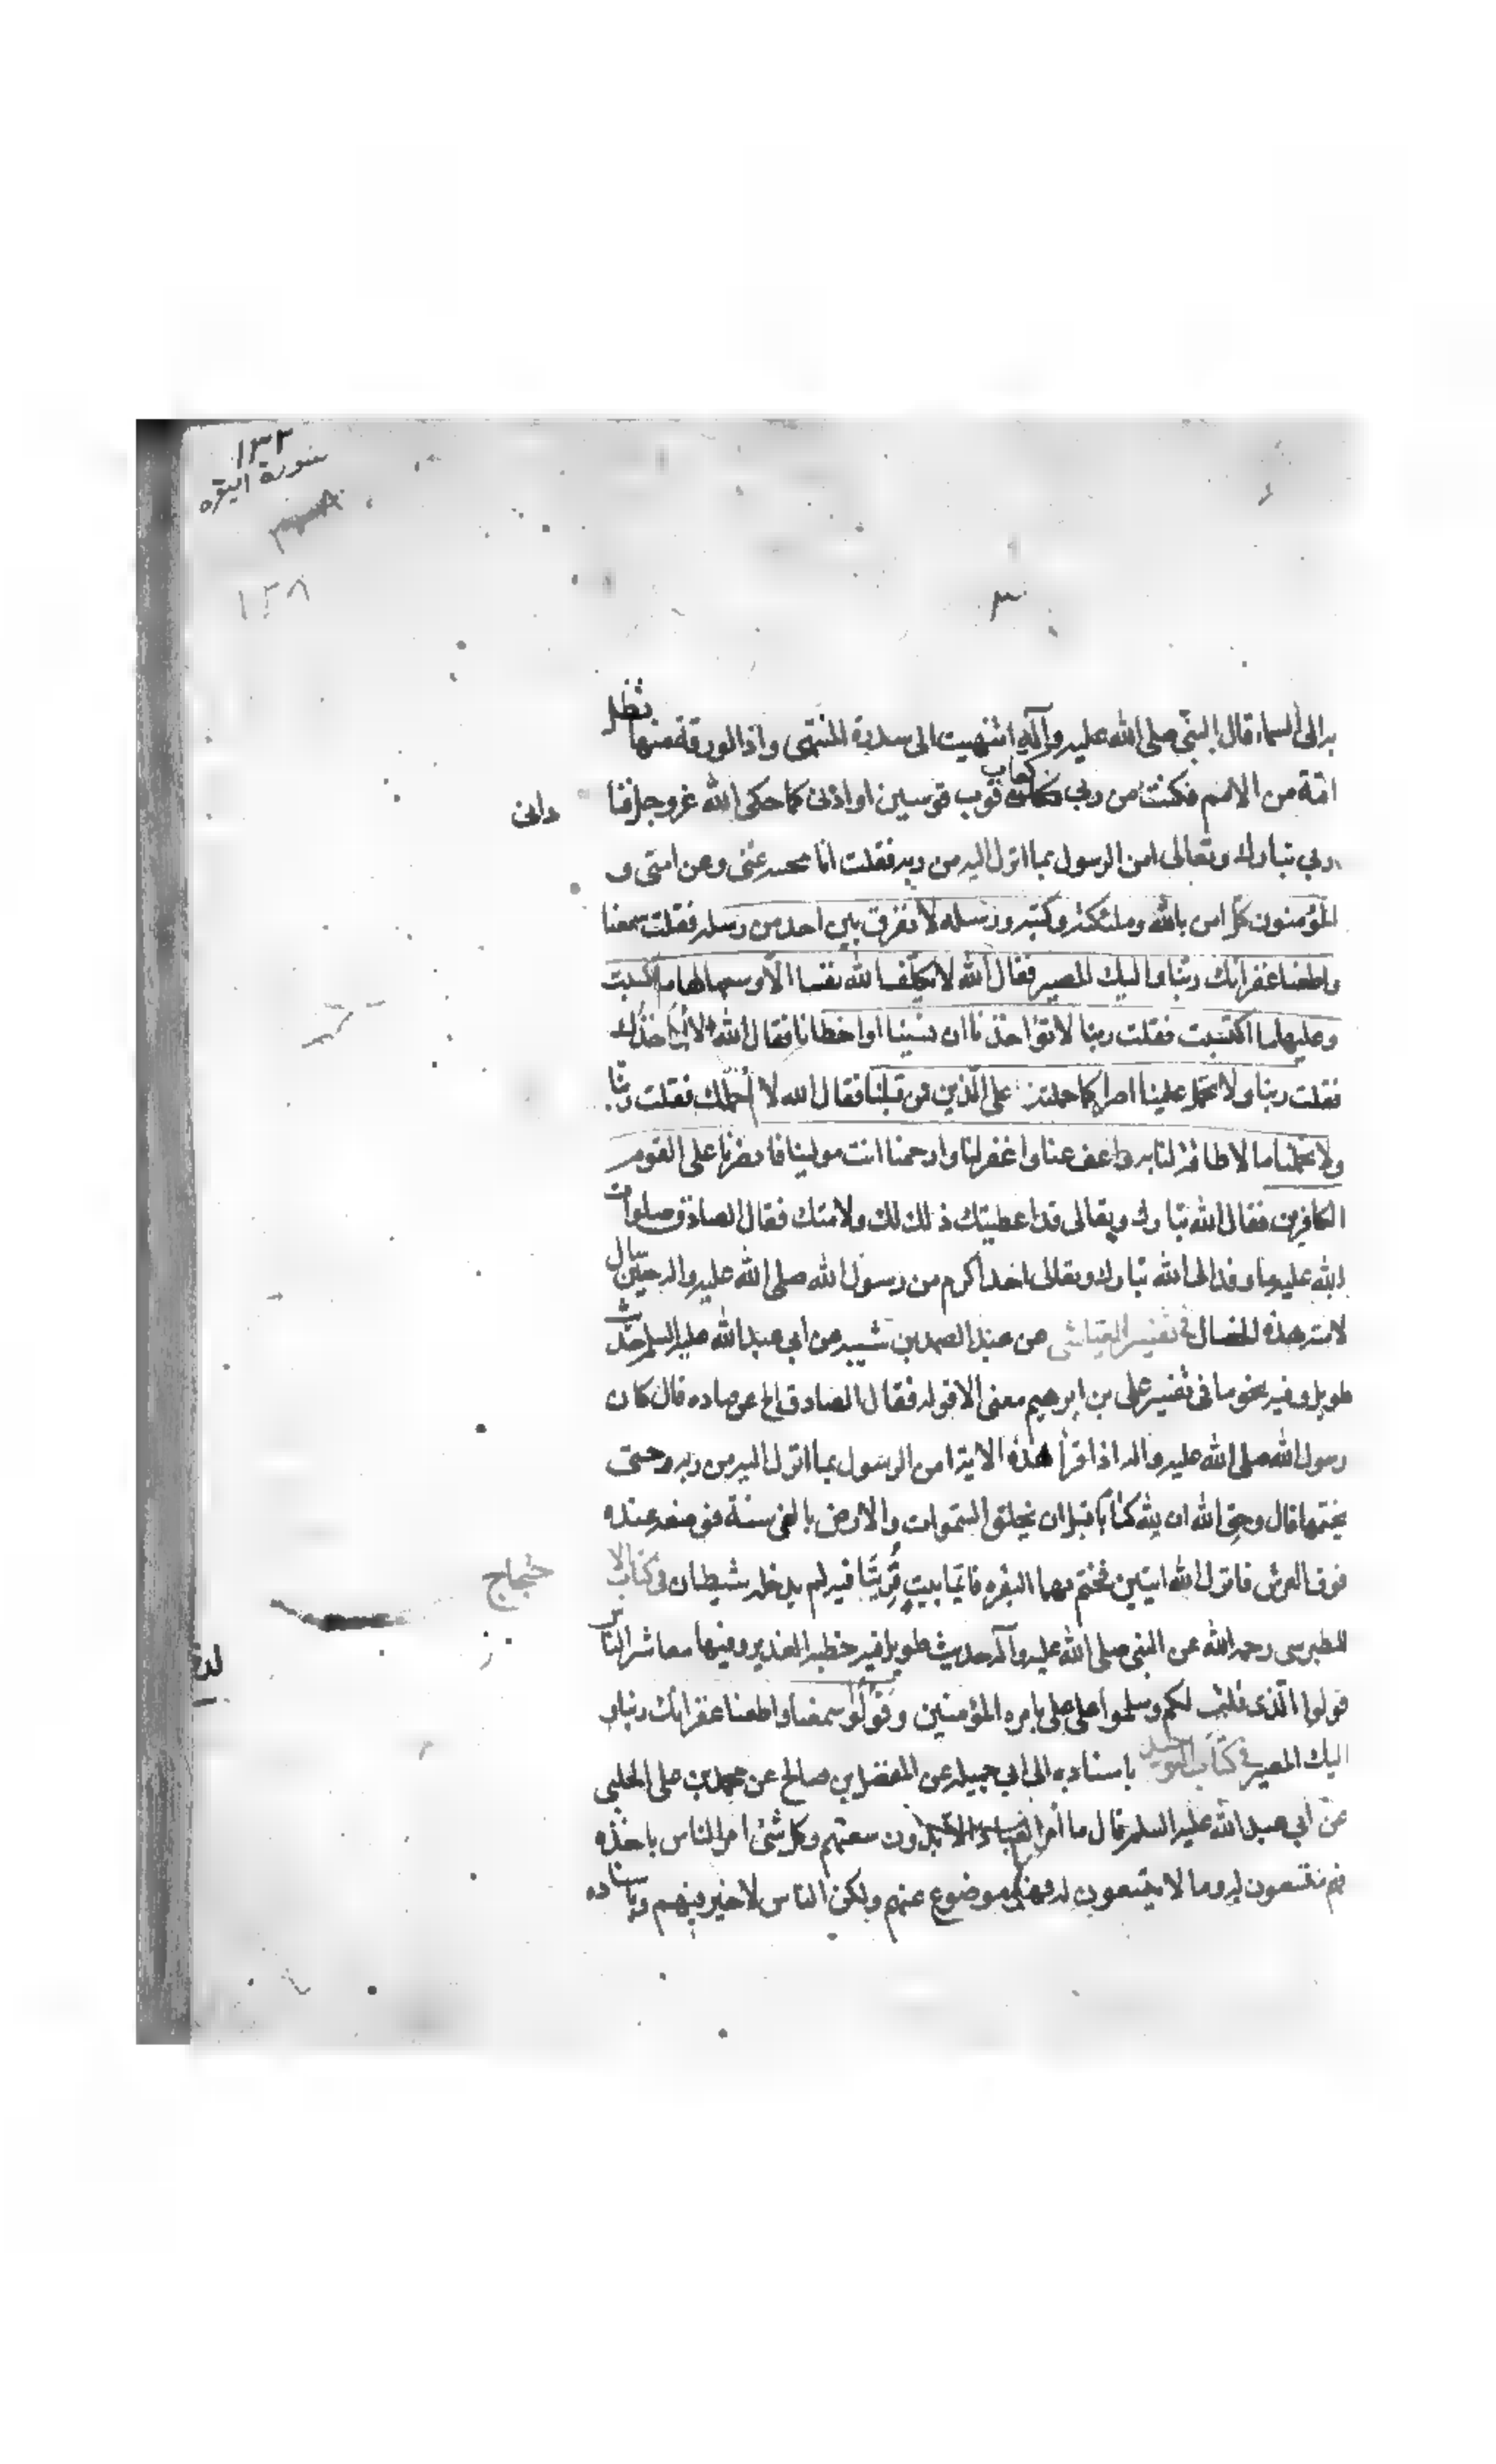 ١٣٣
سورة البقره
١٣٨
٣
به الى السماء قال النبى صلى الله عليه وآله انتهيت الى سدرة المنتهى واذا لورقة منها تظل
امّة من الامم فكنت من ربى كقاب قوسين او ادنى كما حكى الله عزوجل فنا
دانى
ربى تبارك وتعالى امن الرسول بما انزل اليه من ربه فقلت انا مجيب عنى وعن امتى و
المؤمنون كل امن بالله وملئكته وكتبه ورسله لا نفرق بين احد من رسله فقلت سمعنا
واطعنا غفرانك ربنا واليك المصير فقال الله لا يكلف الله نفسا الّا وسعها لها ما كسبت
وعليها ما اكتسبت فقلت ربنا لا تؤاخذنا ان نسينا او اخطانا فقال الله لا اؤاخذك
فقلت ربنا ولا تحمل علينا اصرا كما حملته على الّذين من قبلنا فقال الله لا احملك فقلت ربنا
ولا تحملنا ما لا طاقة لنا به واعف عنا واغفر لنا وارحمنا انت مولينا فانصرنا على القوم
الكافرين فقال الله تبارك وتعالى قد اعطيتك ذلك لك ولامتك فقال الصادق صلوات
الله عليه ما وفد الى الله تبارك وتعالى احد اكرم من رسول الله صلى الله عليه واله حين سال
لامته هذه الخصال فى تفسير العياشى عن عبد الصمد بن شيبه عن ابى عبد الله عليه السلم حديث
طويل وفيه نحو ما فى تفسير على بن ابرهيم معنى الا قوله فقال الصادق الخ عن قال كان
رسول الله صلى الله عليه واله اذا قرأ هذه الاية امن الرسول بما انزل اليه من ربه حتى
يختمها قال وحق الله ان لله كتابا قبل ان يخلق السموات والارض بالفى سنة فوضعه عنده
فوق العرش فانزل الله ايتين فختم بهما البقره فايما بيت قرئتا فيه لم يدخله شيطان فى كتاب الا
حتجاج
للطبرسى رحمه الله عن النبى صلى الله عليه وآله حديث طويل فيه خطبه الغدير وفيها معاشر الناس
قولوا الّذى قلت لكم وسلموا على على بامره المؤمنين وقولوا سمعنا واطعنا غفرانك ربنا و
اليك المصير فى كتاب التوحيد باسناده الى ابى جميله عن المفضل بن صالح عن محمد بن على الحلبى
عن ابى عبد الله عليه السلم قال ما أمر العباد الا بدون سعتهم وكل شئ امر الناس باخذه
فهم متسعون له وما لا يتسعون له فهو موضوع عنهم ولكن الناس لا خير فيهم وباسناده